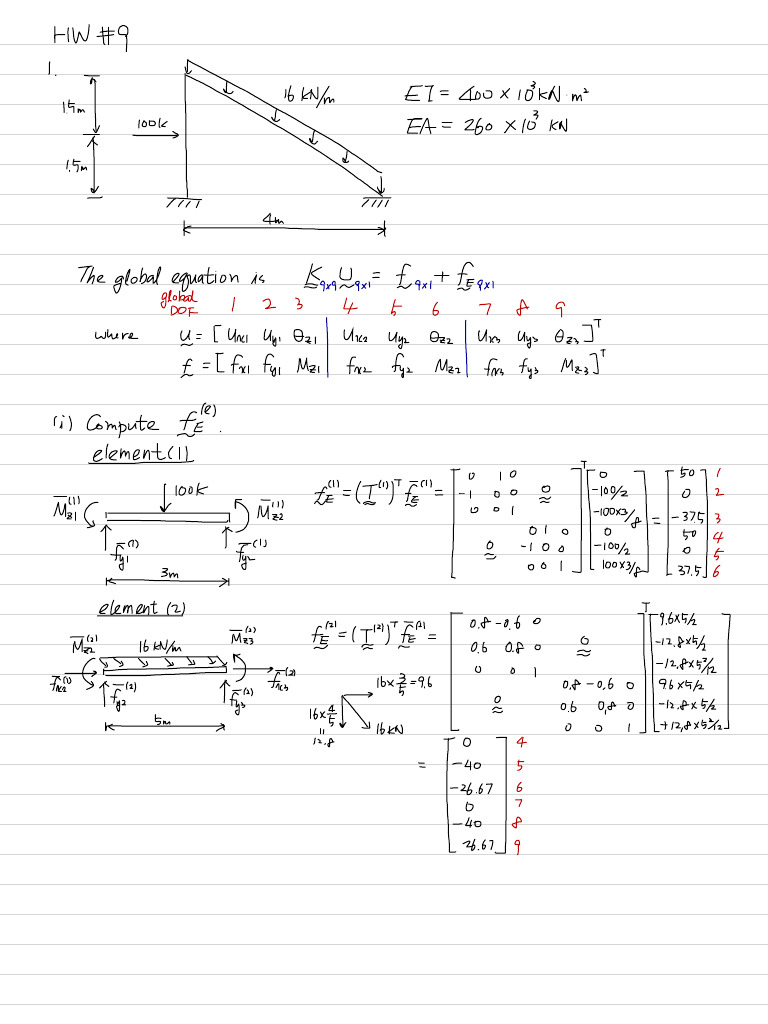 HW #9
1.
1.5m
1.5m
100k
16 kN/m
4m
EI = 400 × 10³ kN·m²
EA = 260 × 10³ kN
The global equation is K₉ₓ₉ U₉ₓ₁ = f₉ₓ₁ + f_E ₉ₓ₁
global DOF 1 2 3 4 5 6 7 8 9
where u = [ Ux1 Uy1 θz1 | Ux2 Uy2 θz2 | Ux3 Uy3 θz3 ]ᵀ
f = [ fx1 fy1 Mz1 | fx2 fy2 Mz2 | fx3 fy3 Mz3 ]ᵀ
(i) Compute f_E^(e).
element (1)
M̄z1^(1) 100k M̄z2^(1)
f̄y1^(1) f̄y2^(1)
3m
f_E^(1) = (T^(1))ᵀ f̄_E^(1) =
[ 0 1 0
-1 0 0 0
0 0 1
0 1 0
0 -1 0 0
0 0 1 ]ᵀ
[ 0
-100/2
-100×3/8
0
-100/2
100×3/8 ]
=
[ 50 ] 1
0 2
-37.5 3
50 4
0 5
37.5 6
element (2)
M̄z2^(2) 16 kN/m M̄z3^(2)
f̄x2^(1) f̄y2^(2) f̄y3^(2) f̄x3^(2)
5m
16×3/5 = 9.6
16×4/5
=
12.8
16kN
f_E^(2) = (T^(2))ᵀ f̄_E^(2) =
[ 0.8 -0.6 0
0.6 0.8 0 0
0 0 1
0.8 -0.6 0
0 0.6 0.8 0
0 0 1 ]ᵀ
[ 9.6×5/2
-12.8×5/2
-12.8×5²/12
9.6×5/2
-12.8×5/2
+12.8×5²/12 ]
=
[ 0 ] 4
-40 5
-26.67 6
0 7
-40 8
26.67 9